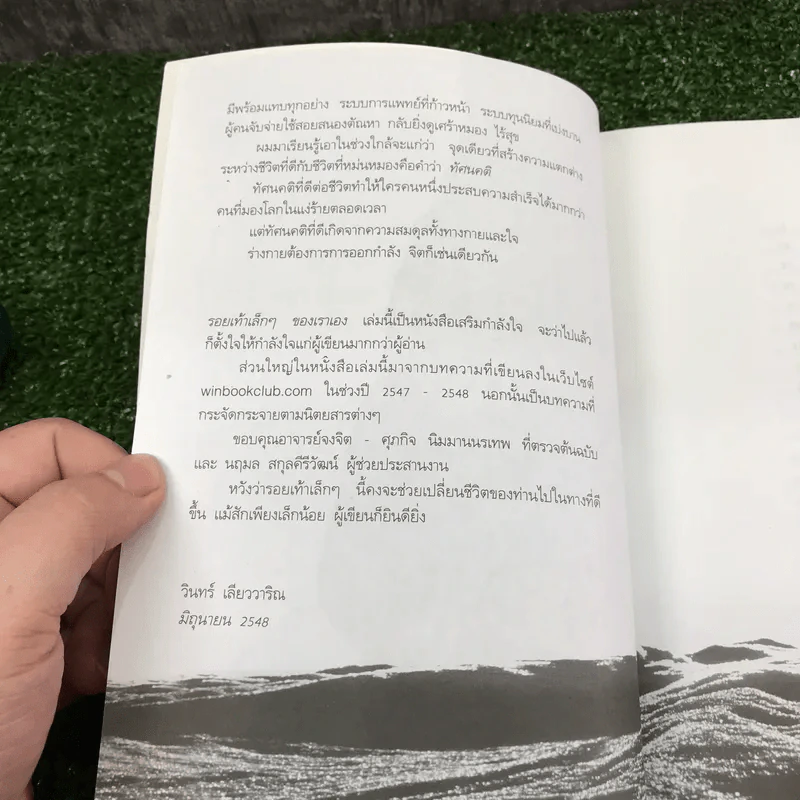 มีพร้อมแทบทุกอย่าง ระบบการแพทย์ที่ก้าวหน้า ระบบทุนนิยมที่เบ่งบาน
ผู้คนจับจ่ายใช้สอยสนองตัณหา กลับยิ่งดูเศร้าหมอง ไร้สุข
ผมมาเรียนรู้เอาในช่วงใกล้จะแก่ว่า จุดเดียวที่สร้างความแตกต่าง
ระหว่างชีวิตที่ดีกับชีวิตที่หม่นหมองคือคำว่า ทัศนคติ
ทัศนคติที่ดีต่อชีวิตทำให้ใครคนหนึ่งประสบความสำเร็จได้มากกว่า
คนที่มองโลกในแง่ร้ายตลอดเวลา
แต่ทัศนคติที่ดีเกิดจากความสมดุลทั้งทางกายและใจ
ร่างกายต้องการการออกกำลัง จิตก็เช่นเดียวกัน
รอยเท้าเล็กๆ ของเราเอง เล่มนี้เป็นหนังสือเสริมกำลังใจ จะว่าไปแล้ว
ก็ตั้งใจให้กำลังใจแก่ผู้เขียนมากกว่าผู้อ่าน
ส่วนใหญ่ในหนังสือเล่มนี้มาจากบทความที่เขียนลงในเว็บไซต์
winbookclub.com ในช่วงปี 2547 - 2548 นอกนั้นเป็นบทความที่
กระจัดกระจายตามนิตยสารต่างๆ
ขอบคุณอาจารย์จงจิต - ศุภกิจ นิมมานนรเทพ ที่ตรวจต้นฉบับ
และ นฤมล สกุลคีรีวัฒน์ ผู้ช่วยประสานงาน
หวังว่ารอยเท้าเล็กๆ นี้คงจะช่วยเปลี่ยนชีวิตของท่านไปในทางที่ดี
ขึ้น แม้สักเพียงเล็กน้อย ผู้เขียนก็ยินดียิ่ง
วินทร์ เลียววาริณ
มิถุนายน 2548